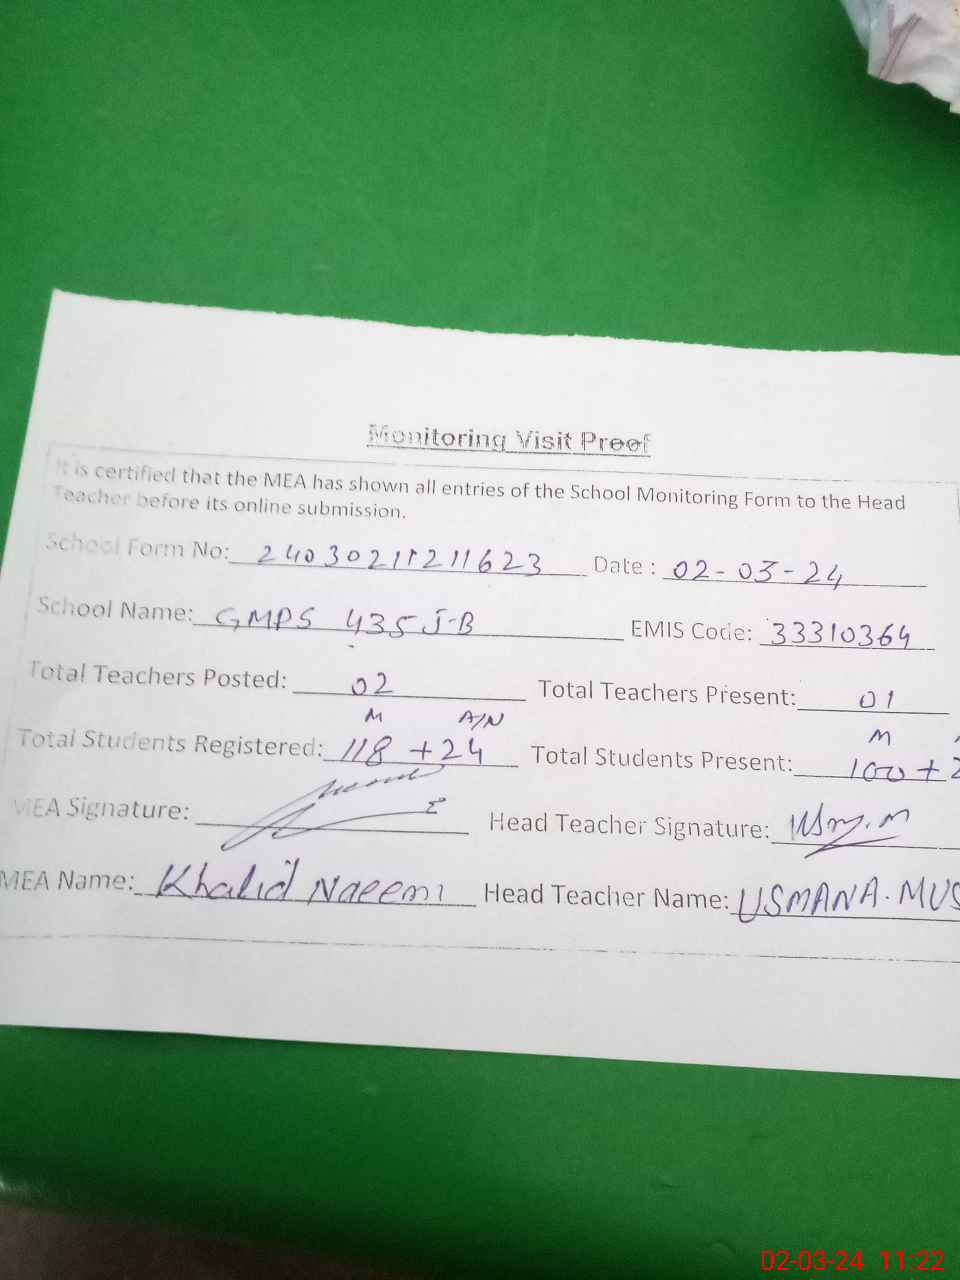 Monitoring Visit Proof
It is certified that the MEA has shown all entries of the School Monitoring Form to the Head
Teacher before its online submission.
School Form No: 24030211211623 Date : 02-03-24
School Name: GMPS 435 J-B EMIS Code: 33310364
Total Teachers Posted: 02 Total Teachers Present: 01
M A/N M
Total Students Registered: 118 +24 Total Students Present: 100 + 2
MEA Signature: Head Teacher Signature:
MEA Name: Khalid Naeem Head Teacher Name: USMANA. MUS
02-03-24 11:22